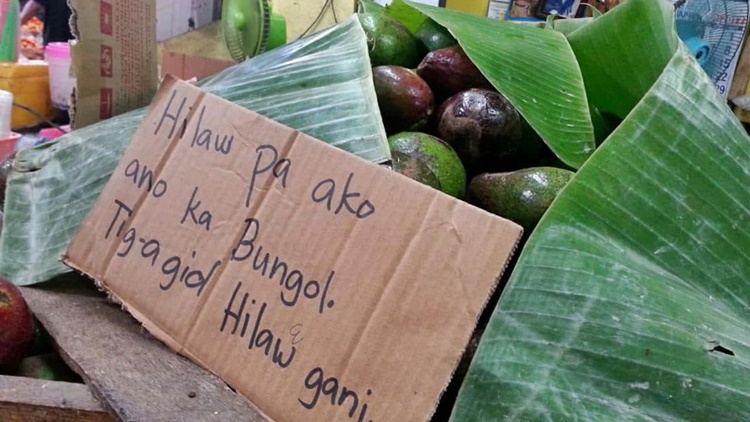 Hilaw pa ako
ano ka Bungol.
Tig-a gid
Hilaw gani.